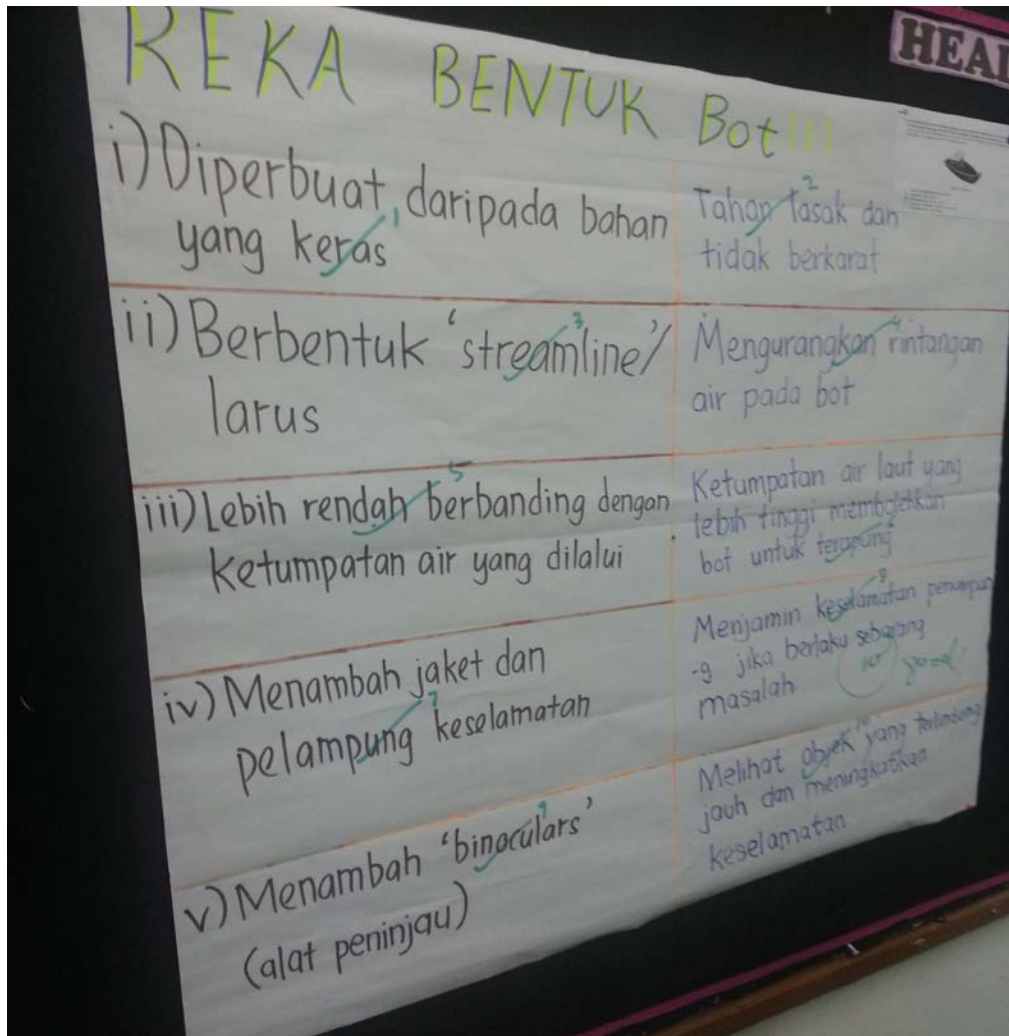 REKA BENTUK Bot!!!
HEAL
i) Diperbuat daripada bahan
yang keras
1
Tahan lasak dan
tidak berkarat
2
ii) Berbentuk 'streamline'/
larus
3
Mengurangkan rintangan
air pada bot
4
iii) Lebih rendah berbanding dengan
ketumpatan air yang dilalui
5
Ketumpatan air laut yang
lebih tinggi membolehkan
bot untuk terapung
iv) Menambah jaket dan
pelampung keselamatan
7
Menjamin keselamatan penumpan
-g jika berlaku sebarang
masalah
8
10 good
v) Menambah 'binoculars'
(alat peninjau)
9
Melihat objek yang terlindung
jauh dan meningkatkan
keselamatan
10